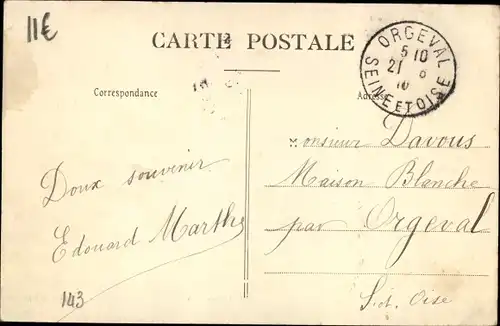 11€
CARTE POSTALE
ORGEVAL
5 10
21 8
10
SEINE ET OISE
Correspondance
Adresse
Monsieur Davous
Maison Blanche
par Orgeval
S. et. Oise
Doux souvenir
Edouard Marthe
143